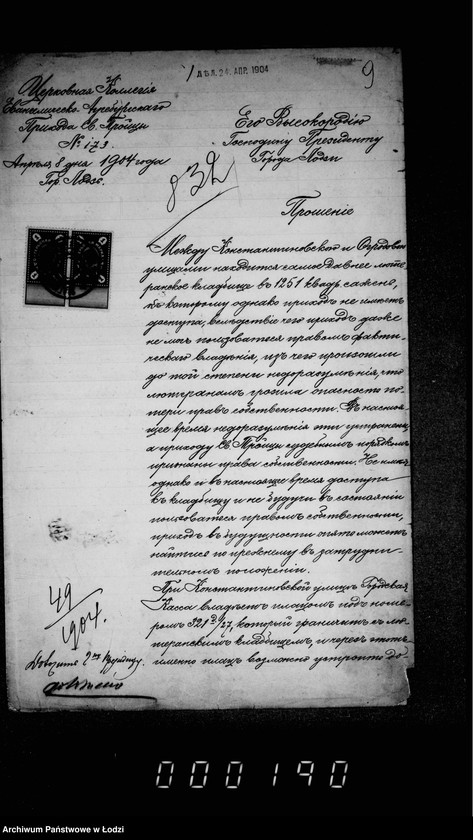 / Д.Б.Л. 24. АПР. 1904
9
Церковная Коллегія
Евангелическо-Аугсбургскаго
Прихода Св. Троицы
№ 173.
Апрѣля 8 дня 1904 года
Гор. Лодзь.
Его Высокородію
Господину Президенту
Города Лодзи
832
Прошеніе
Между Константиновской и Огродовой
улицами находится самое давнее люте-
ранское кладбище въ 1251 квадр. сажень,
къ которому однако приходъ не имѣетъ
доступа, вслѣдствіе чего приходъ даже
не могъ пользоваться правомъ факти-
ческаго владѣнія, изъ чего произошли
до той степени недоразумѣнія, что
лютеранамъ грозила опасность по-
тери правъ собственности. Въ настоя-
щее время недоразумѣнія эти устранены,
а приходу Св. Троицы судебнымъ порядкомъ
признаны права собственности. Не имѣя
однако и въ настоящее время доступа
къ кладбищу и не будучи въ состояніи
пользоваться правомъ собственности,
приходъ въ будущности опять можетъ
найтись по прежнему въ затрудни-
тельномъ положеніи.
При Константиновской улицѣ Городская
Касса владѣетъ плацомъ подъ номе-
ромъ 321/27, который граничитъ съ лю-
теранскимъ кладбищемъ, и черезъ этотъ
именно плацъ возможно устроить до-
49
1904.
000190
Archiwum Państwowe w Łodzi